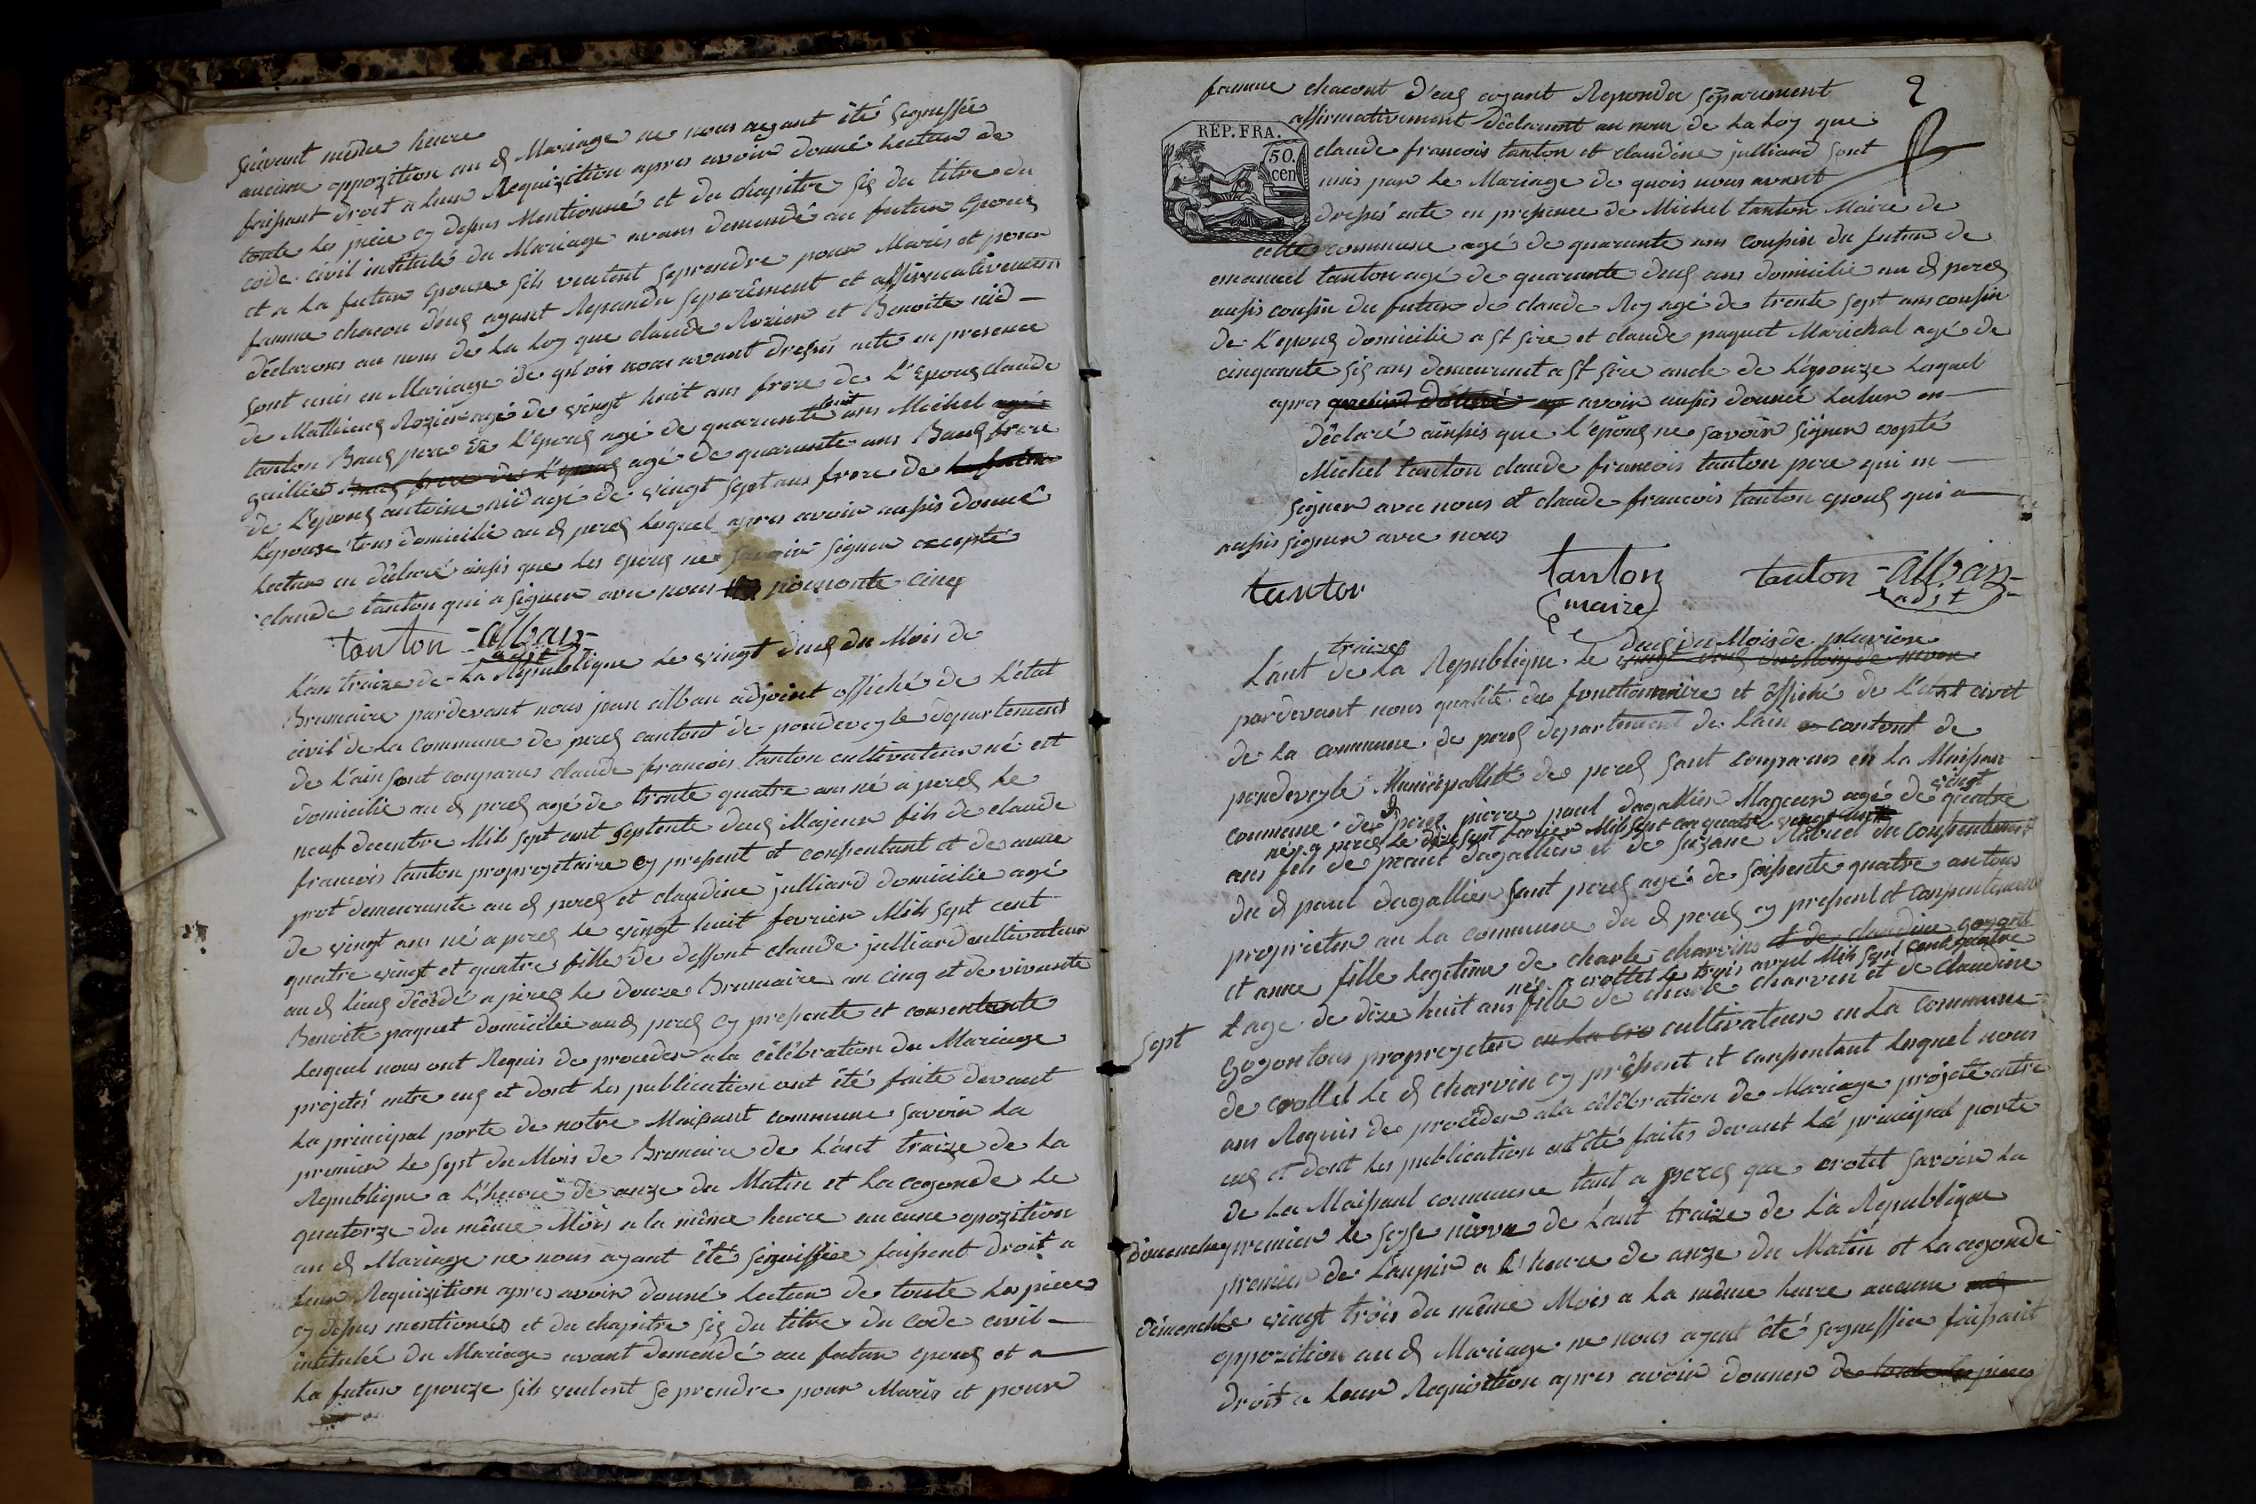 suivant même heure
aucune oppozition au d Mariage ne nous ayant été signiffié
faisant droit a leur Requizition apres avoir donné lecture de
toute les pièce cy desus Mentionné et du chapitre six du titre du
code civil intitulé du Mariage avans demandé au futur Epoux
et a la futur Epouse sils veulent se prendre pour Maris et pour
famme chacon d'eux ayant Repandu separément et affirmativement
déclarons au nom de la loy que claude Rozier et Benoite nid
sont unis en Mariage de quois nous avant dressés acte en presence
de Mathieux Rozier agé de vingt huit ans frere de l'Epoux claude
tanton Baux pere de l'Epoux agé de quarante huit ans Michel agé
guillied baux frere de l'Epoux agé de quarante ans Baux frere
de l'époux antoine nid agé de vingt sept ans frere de la futur
l'epouze tous domicilie au d perex lesquel apres avoir aussis donné
lecture en déclaré ainsis que les epoux ne savoir signer excepté
claude tanton qui a signer avec nous cinq
tanton alban
adjt
L'an traize de la Republique le vingt deux du Mois de
Brumaire pardevant nous jean alban adjoint officié de l'état
civil de la commune de perex cantont de pondeveyle departement
de l'ain sont conparus claude francois tanton cultivateur né et
domicilie au d perex agé de trente quatre ans né a perex le
neuf decentre Mils sept cent septente deux Majeur fils de claude
francois tanton propreyetaire cy present et consentant et de anne
prot demeurante au d perex et claudine julliard domicilie agé
de vingt ans né a perex le vingt huit fevrier Mils sept cent
quatre vingt et quatre fille de deffont claude julliard cultivateur
au d lieux décédé a perex le douze Brumaire an cinq et de vivante
Benoite paquet domicilie au d perex cy presente et consentente
lesquel nous ont Requis de proceder a la célébration du Mariage
projetés entre eux et dont les publication ont été faite devant
la principal porte de notre Maisant commune savoir la
premier le sept du Mois de Brumaire de l'ant traize de la
Republique a l'heure de onze du Matin et la cegonde le
quatorze du même Mois a la même heure aucune opozition
au d Mariage ne nous ayant été signiffiée faisent droit a
leur Requizition apres avoir donné lecture de toute les pièces
cy desus mentionnées et du chapitre six du titre du code civil
intitulé du Mariage avant demandé au futur epoux et a
la futur epouze sils veulent se prendre pour Maris et pour
2
famme chacont d'eux ayant Repondu séparement
affirmativement Déclarent au nom de la loy que
REP. FRA.
50.
cen
claude francois tanton et claudine julliard sont
unis par le Mariage de quois nous avant
dressés acte en presence de Michel tanton Maire de
cette commune agé de quarante ans cousin du futur de
emanuel tanton agé de quarante deux ans domicilie au d perex
aussis cousin du futur de claude Rey agé de trente sept ans cousin
de l'epoux domicilie a st sire et claude paquet Marichal agé de
cinquante six ans demeurant a st sire oncle de l'epouze lesquel
apres avoir aussis donnée lectur en
déclaré ainsis que l'epoux ne savoir signer exepté
Michel tanton claude francois tanton pere qui on
signer avec nous et claude francois tanton epoux qui a
aussis signer avec nous
tanton tanton tanton alban
maire adjt
traize deux du Mois de pluviose
L'ant de la Republique le vingt deux du Mois de nivose
pardevant nous qualité de fonctionnaire et officié de l'etat civit
de la commune de perex departement de l'ain et contont de
pondeveyle Municipallité de perex sant conparus en la Maisan
commune de perex pierre paul dagallier Majeur agé de vingt quatre
né a perex le dix sept fevrier Mils sept cen quatre vingt
ans fils de paul dagallier et de suzane du consentement
du d paul dagallier sant perex agé de soissente quatre an tous
proprietere au la commune du d perex cy present et consentement
et anne fille legitime de charle charvin et de claudine goyon
né a crottet le trois avril Mils sept cent quatre
sept
l age de dixe huit ans fille de charle charvin et de claudine
Goyon tous propreyetere en la cro cultivateur en la commune
de crottet le d charvin cy présent et consentant lesquel nous
ans Requis de procéder a la célébration de Mariage projeté entre
eux et dont les publication ont été faites devant la principal porte
de la Maisant commune tant a perex que crotet savoir la
dimanche premier le seze nivose de l'ant traize de la Republique
premier de l'anpir a l'heure de onze du Matin et la cegonde
dimanche le vingt trois du même Mois a la même heure aucune
oppozition au d Mariage ne nous ayant été signiffiée faisant
droit a leur Requisition apres avoir donner de toute les pieces